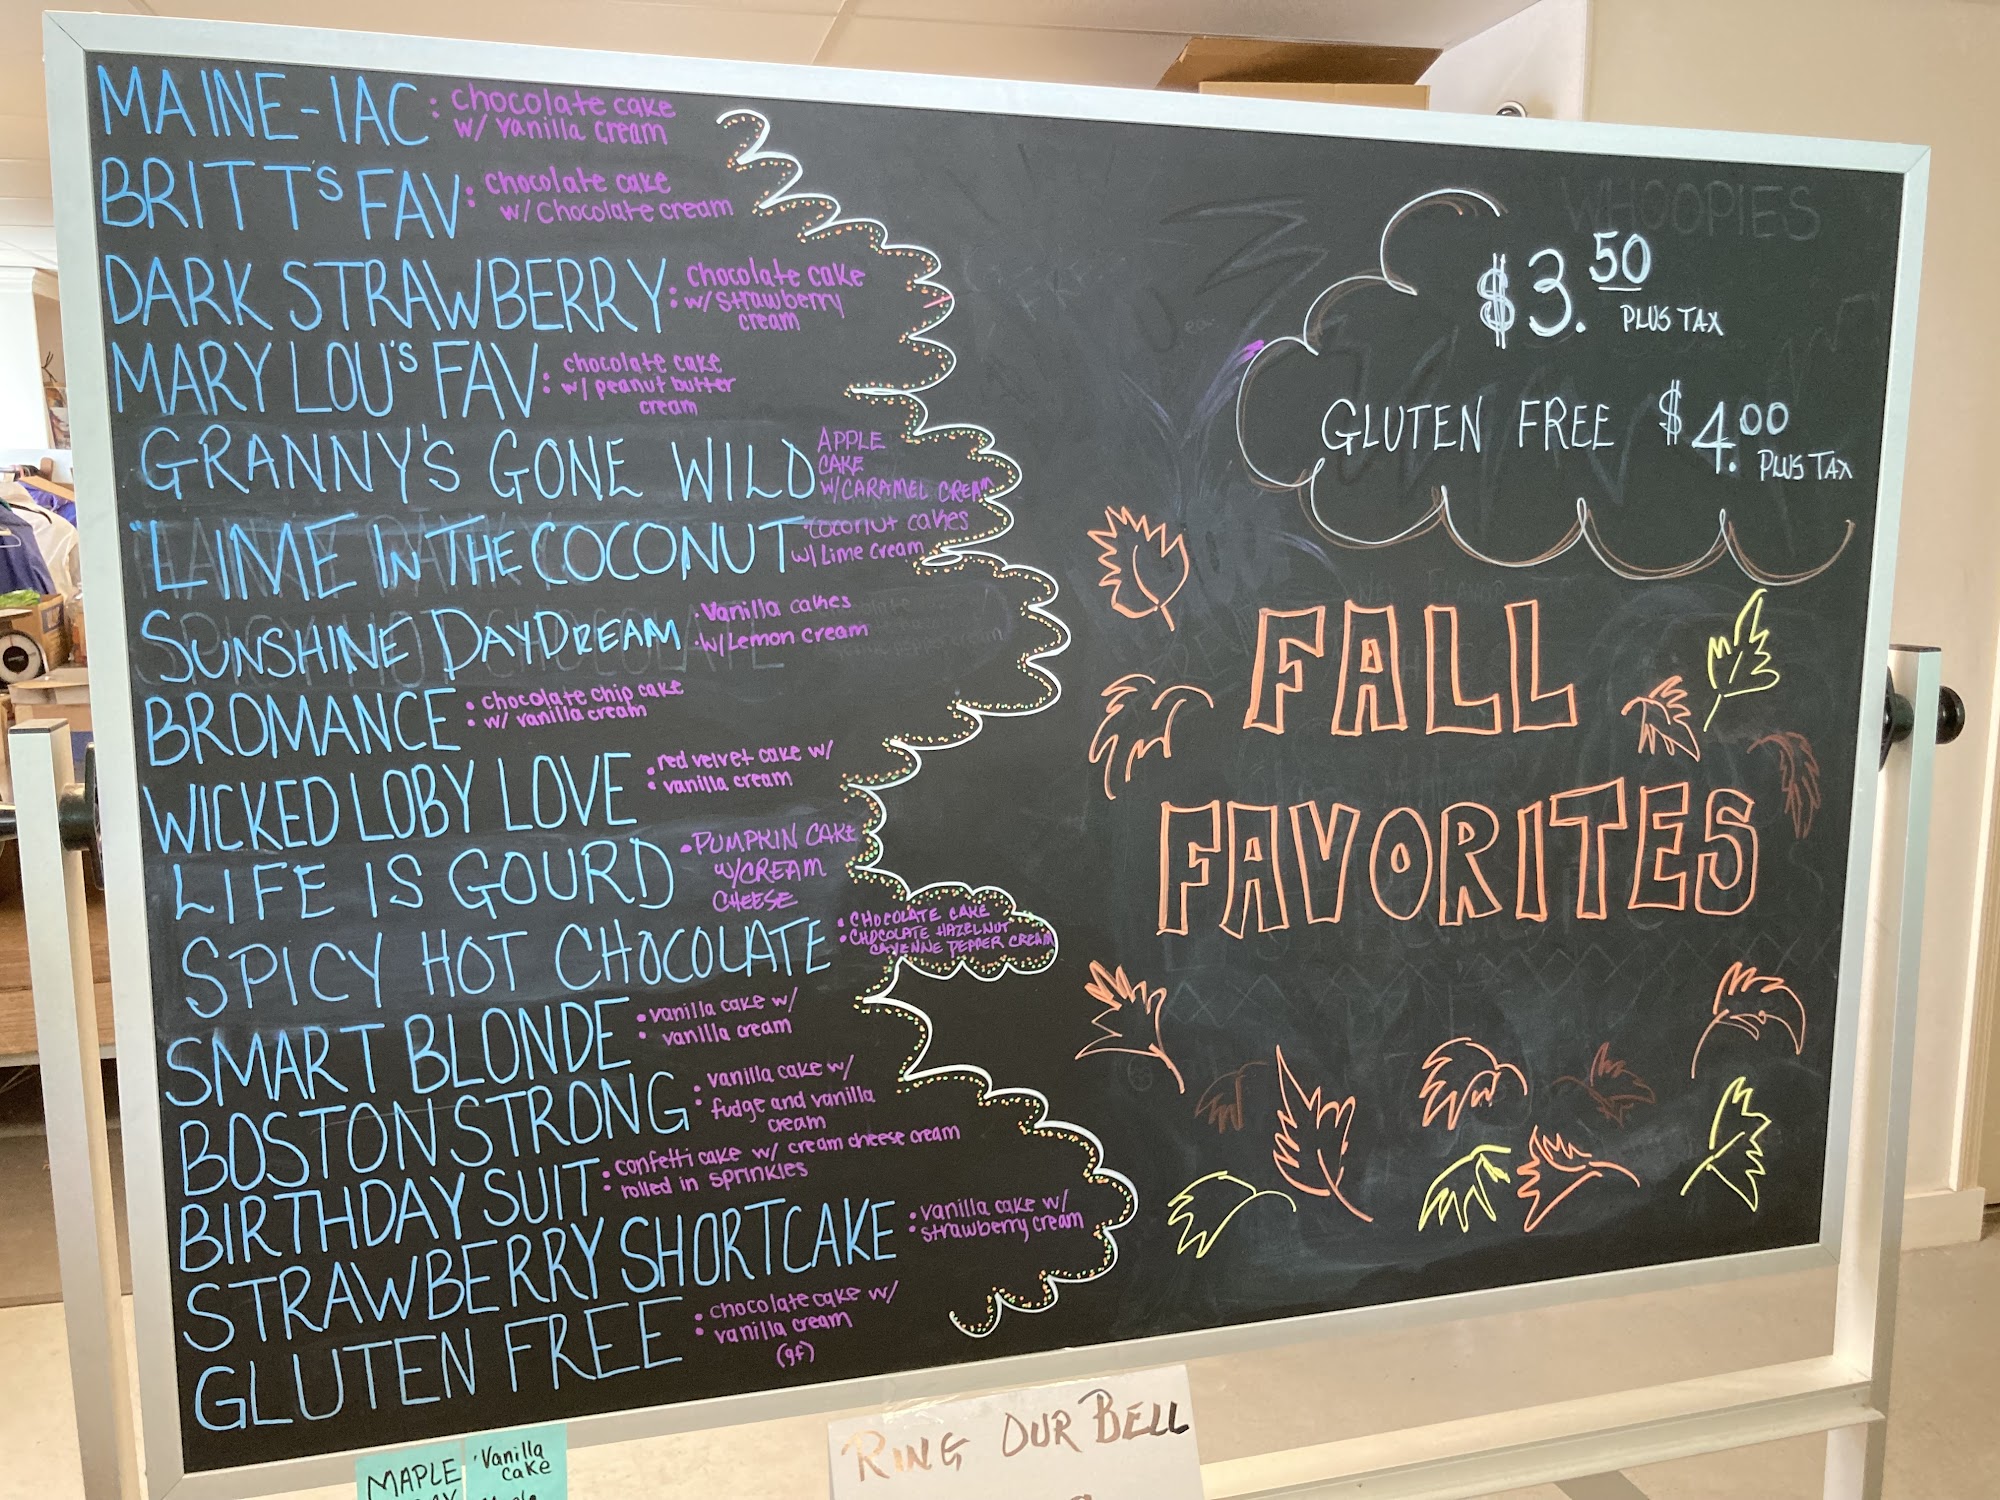 MAINE-IAC : chocolate cake
w/ vanilla cream
BRITT'S FAV : chocolate cake
w/ chocolate cream
DARK STRAWBERRY : chocolate cake
w/ strawberry
cream
MARY LOU'S FAV : chocolate cake
w/ peanut butter
cream
GRANNY'S GONE WILD APPLE
CAKE
W/CARAMEL CREAM
"LIME IN THE COCONUT • coconut cakes
w/ Lime cream
SUNSHINE DAYDREAM • Vanilla cakes
• w/Lemon cream
BROMANCE • chocolate chip cake
• w/ vanilla cream
WICKED LOBY LOVE • red velvet cake w/
• vanilla cream
LIFE IS GOURD • PUMPKIN CAKE
W/CREAM
CHEESE
SPICY HOT CHOCOLATE • CHOCOLATE CAKE
• CHOCOLATE HAZELNUT
CAYENNE PEPPER CREAM
SMART BLONDE • vanilla cake w/
• vanilla cream
BOSTON STRONG • vanilla cake w/
• fudge and vanilla
cream
BIRTHDAY SUIT : confetti cake w/ cream cheese cream
rolled in sprinkles
STRAWBERRY SHORTCAKE • vanilla cake w/
• strawberry cream
GLUTEN FREE • chocolate cake w/
• vanilla cream
(gf)
WHOOPIES
$3.50
PLUS TAX
GLUTEN FREE $4.00
PLUS TAX
FALL
FAVORITES
MAPLE
• Vanilla
cake
RING OUR BELL